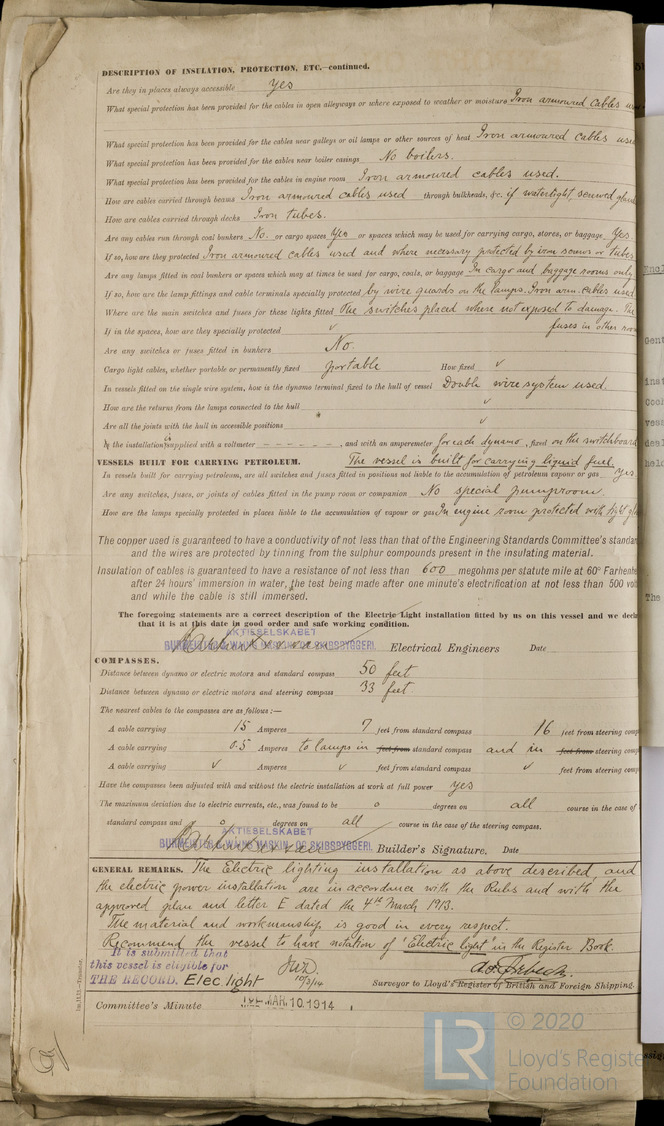 DESCRIPTION OF INSULATION, PROTECTION, ETC.—continued.
Are they in places always accessible Yes
What special protection has been provided for the cables in open alleyways or where exposed to weather or moisture Iron armoured cables
What special protection has been provided for the cables near galleys or oil lamps or other sources of heat Iron armoured cables used
What special protection has been provided for the cables near boiler casings No boilers.
What special protection has been provided for the cables in engine room Iron armoured cables used.
How are cables carried through beams Iron armoured cables used through bulkheads, &c. if watertight, screwed
How are cables carried through decks Iron tubes.
Are any cables run through coal bunkers No. or cargo spaces Yes or spaces which may be used for carrying cargo, stores, or baggage Yes
If so, how are they protected Iron armoured cables used and where necessary protected by iron screens or tubes
Are any lamps fitted in coal bunkers or spaces which may at times be used for cargo, coals, or baggage In cargo and baggage rooms only
If so, how are the lamp fittings and cable terminals specially protected, by wire guards on the lamps. Iron arm. cables used
Where are the main switches and fuses for these lights fitted The switches placed where not exposed to damage. The
If in the spaces, how are they specially protected ✓ fuses in other
Are any switches or fuses fitted in bunkers No.
Cargo light cables, whether portable or permanently fixed portable How fixed ✓
In vessels fitted on the single wire system, how is the dynamo terminal fixed to the hull of vessel Double wire system used.
How are the returns from the lamps connected to the hull ✓
Are all the joints with the hull in accessible positions ✓
Is the installation is supplied with a voltmeter – – – – – –, and with an amperemeter for each dynamo, fixed on the switchboard
VESSELS BUILT FOR CARRYING PETROLEUM. The vessel is built for carrying liquid fuel.
In vessels built for carrying petroleum, are all switches and fuses fitted in positions not liable to the accumulation of petroleum vapour or gas yes.
Are any switches, fuses, or joints of cables fitted in the pump room or companion No special pumproom.
How are the lamps specially protected in places liable to the accumulation of vapour or gas In engine room protected with
The copper used is guaranteed to have a conductivity of not less than that of the Engineering Standards Committee's
and the wires are protected by tinning from the sulphur compounds present in the insulating material.
Insulation of cables is guaranteed to have a resistance of not less than 600 megohms per statute mile at 60°
after 24 hours' immersion in water, the test being made after one minute's electrification at not less than 500
and while the cable is still immersed.
The foregoing statements are a correct description of the Electric Light installation fitted by us on this vessel and we
that it is at this date in good order and safe working condition.
AKTIESELSKABET
BURMEISTER & WAINS MASKIN- OG SKIBSBYGGERI. Electrical Engineers Date
COMPASSES.
Distance between dynamo or electric motors and standard compass 50 feet
Distance between dynamo or electric motors and steering compass 33 feet
The nearest cables to the compasses are as follows:—
A cable carrying 15 Amperes 7 feet from standard compass 16 feet from steering
A cable carrying 0.5 Amperes to lamps in feet from standard compass and in feet from steering
A cable carrying ✓ Amperes ✓ feet from standard compass ✓ feet from steering
Have the compasses been adjusted with and without the electric installation at work at full power yes
The maximum deviation due to electric currents, etc., was found to be 0 degrees on all course in the case of
standard compass and 0 degrees on all course in the case of the steering compass.
AKTIESELSKABET
BURMEISTER & WAINS MASKIN- OG SKIBSBYGGERI. Builder's Signature. Date
GENERAL REMARKS. The Electric lighting installation as above described, and
the electric power installation are in accordance with the Rules and with the
approved plan and letter E dated the 4th March 1913.
The material and workmanship is good in every respect.
Recommend the vessel to have notation of 'Electric light' in the Register Book.
It is submitted that
this vessel is eligible for
THE RECORD. Elec light
10/3/14
Surveyor to Lloyd's Register of British and Foreign Shipping.
Committee's Minute MAR. 10. 1914
© 2020
LR
Lloyd's Register
Foundation